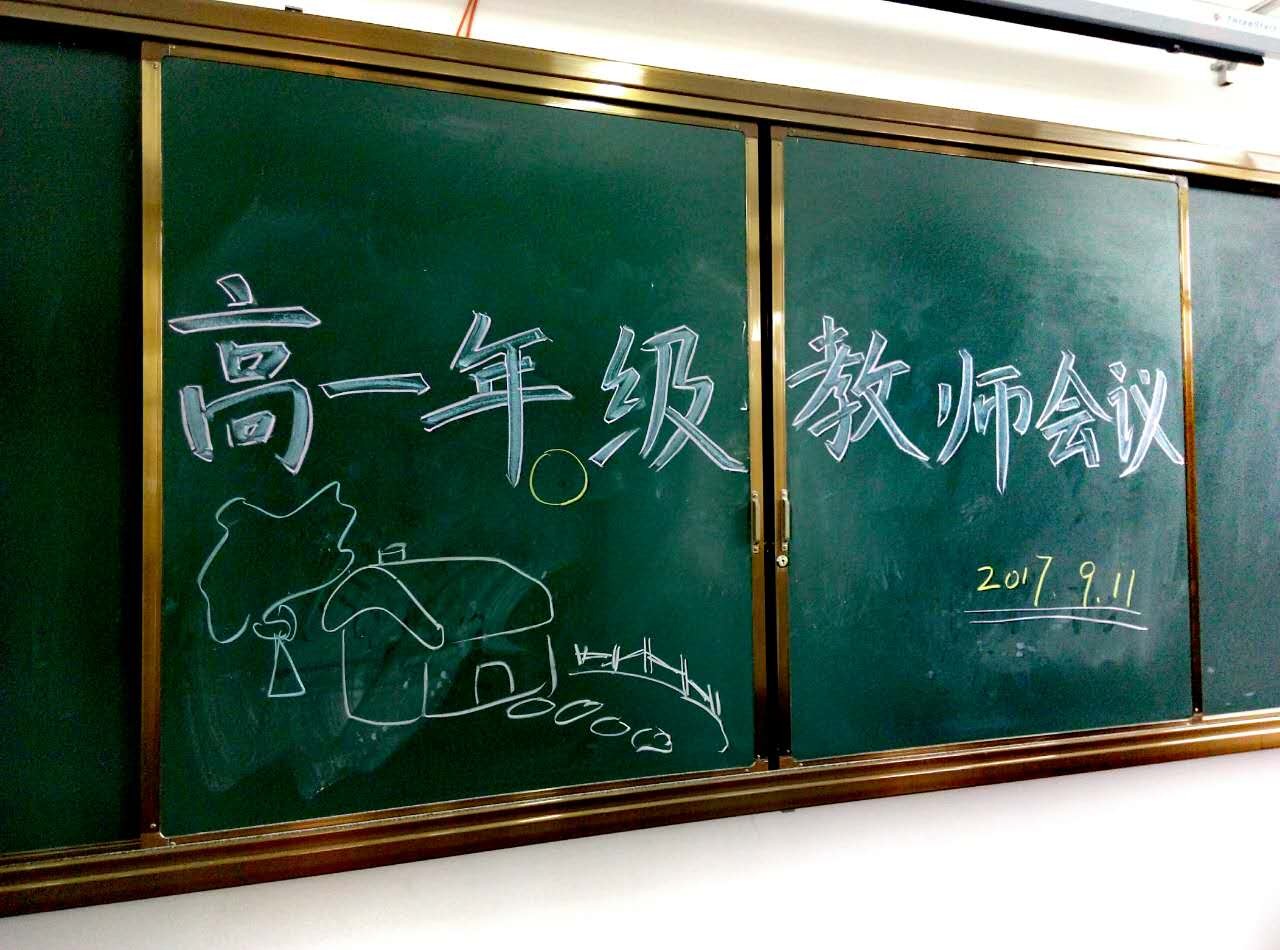 高一年级教师会议
2017.9.11